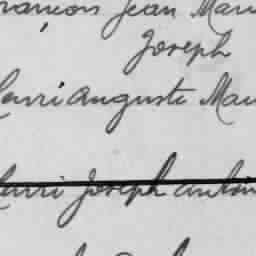 rançois Jean Mari
Joseph
Henri Auguste Mau
Henri Joseph antoin